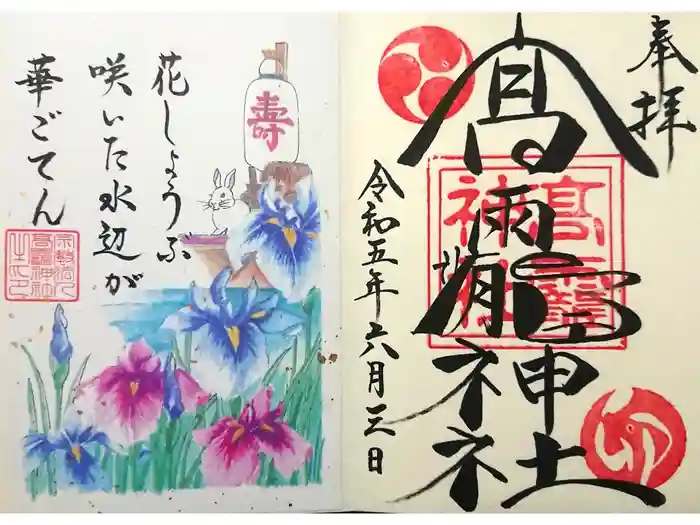 奉拝
高龗神社
令和五年六月三日
花しょうぶ
咲いた水辺が
華ごてん
寿